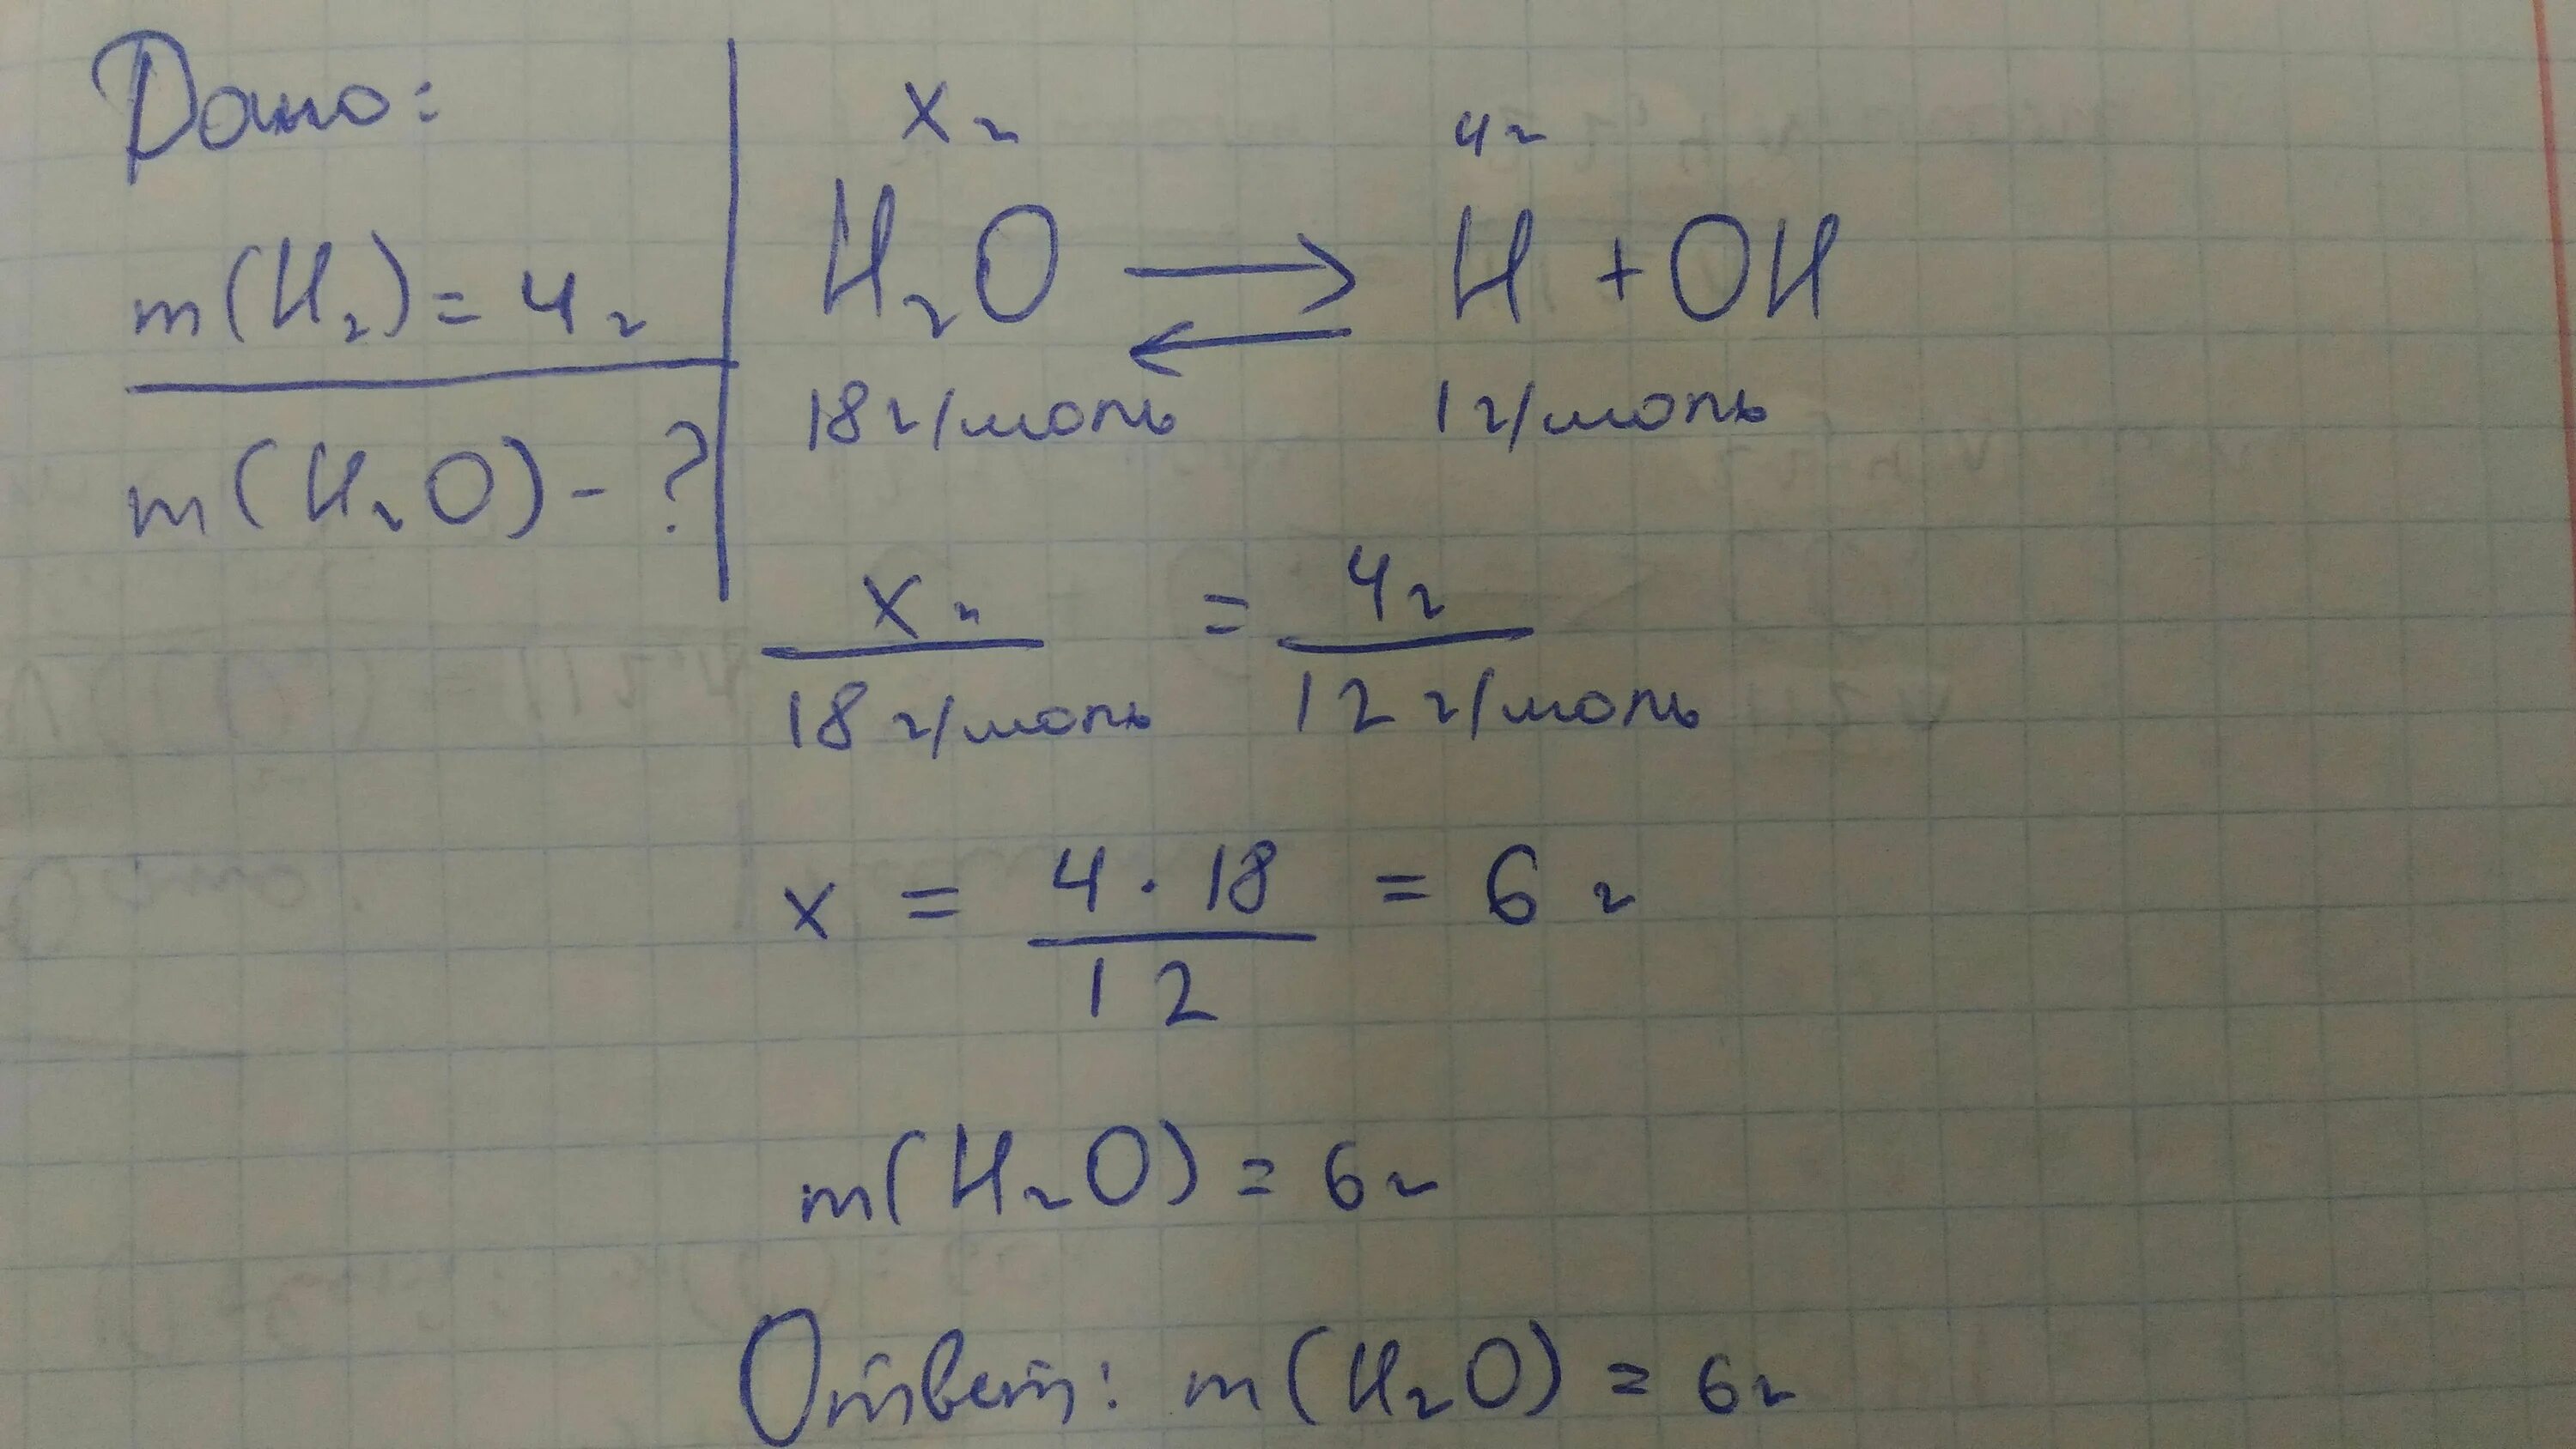 Дано:
m(H₂) = 4г
m(H₂O) - ?
xг 4г
H₂O ⇄ H + OH
18г/моль 1г/моль
xг / 18г/моль = 4г / 12г/моль
x = 4 · 18 / 12 = 6 г
m(H₂O) = 6г
Ответ: m(H₂O) = 6г